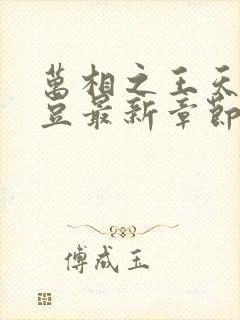 萬相之王天
豆最新章節
傅成玉